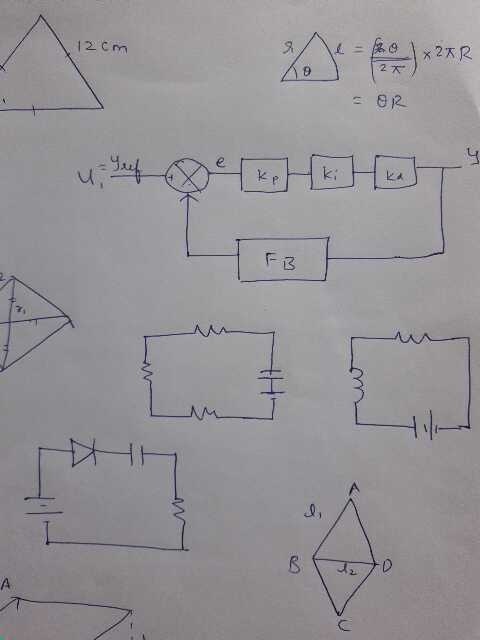 12 cm
r θ l = (θ/2π) × 2πR
= θR
U₁ = yref + e kp ki kd y
FB
r₁
A
l₁
B l₂ D
C
A